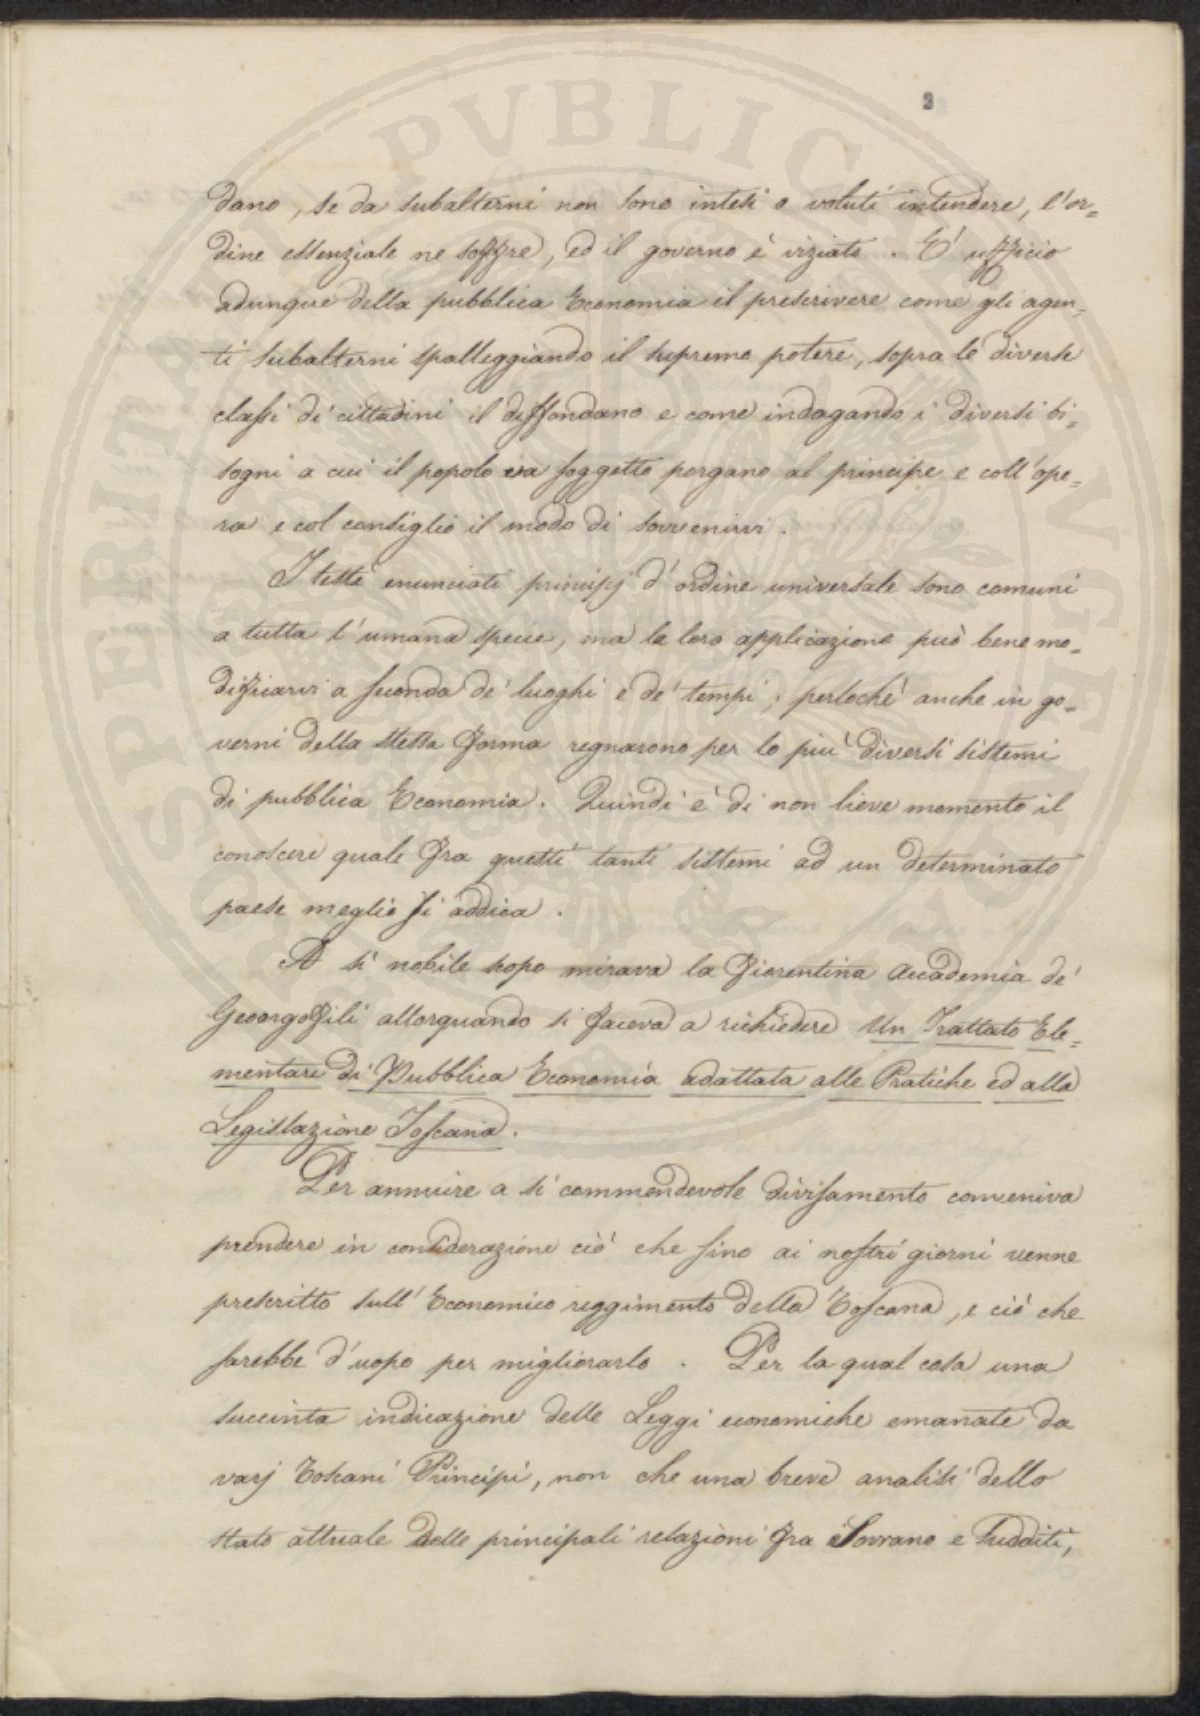 3
dano, se da subalterni non sono intesi o voluti intendere, l'or=
dine essenziale ne soffre, ed il governo è viziato. E' ufficio
adunque della pubblica Economia il prescrivere come gli agen=
ti subalterni spalleggiando il supremo potere, sopra le diverse
classi di cittadini il diffondano e come indagando i diversi bi=
sogni a cui il popolo va soggetto porgano al principe e coll'ope=
ra e col consiglio il modo di sovvenirvi.
I testè enunciati principj d'ordine universale sono comuni
a tutta l'umana specie, ma la loro applicazione può bene mo=
dificarsi a seconda de' luoghi e de' tempi; perlochè anche in go=
verni della stessa forma regnarono per lo più diversi sistemi
di pubblica Economia. Quindi è di non lieve momento il
conoscere quale fra questi tanti sistemi ad un determinato
paese meglio si addica.
A sì nobile scopo mirava la Fiorentina Accademia de'
Georgofili allorquando si faceva a richiedere Un Trattato Ele=
mentare di Pubblica Economia adattata alle Pratiche ed alla
Legislazione Toscana.
Per annuire a sì commendevole divisamento conveniva
prendere in considerazione ciò che sino ai nostri giorni venne
prescritto sull'Economico reggimento della Toscana, e ciò che
sarebbe d'uopo per migliorarlo. Per la qual cosa una
succinta indicazione delle Leggi economiche emanate da
varj Toscani Principi, non che una breve analisi dello
stato attuale delle principali relazioni fra Sovrano e Sudditi,